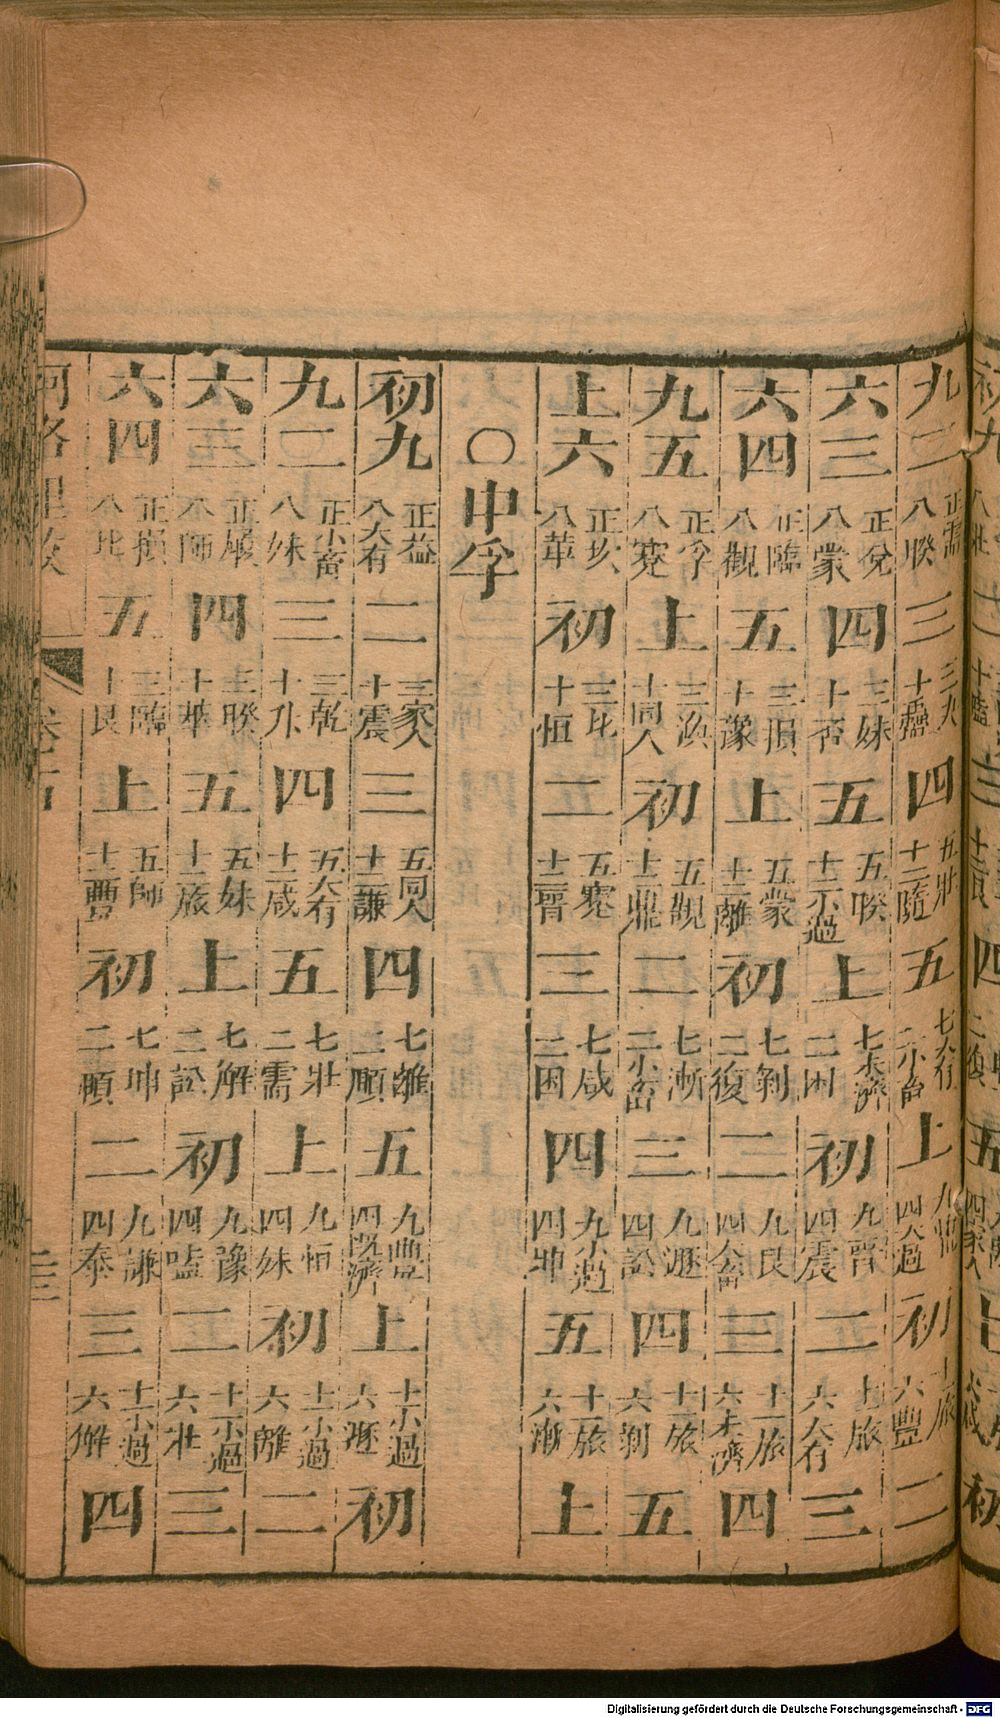 九二 正需 八睽 三 三夬 十蠱 四 五壯 十二隨 五 七大有 二小畜 上 九鼎 四大過 初 十一旅 六豐 二
六三 正兌 八蒙 四 三妹 十否 五 五睽 十二小過 上 七未濟 二困 初 九晉 四震 二 十一旅 六大有 三
六四 正臨 八觀 五 三損 十豫 上 五蒙 十二離 初 七剝 二復 二 九艮 四大畜 三 十一旅 六未濟 四
九五 正孚 八蹇 上 三渙 十同人 初 五觀 十二鼎 二 七漸 二小畜 三 九遯 四訟 四 十一旅 六剝 五
上六 正坎 八革 初 三比 十恒 二 五蹇 十二晉 三 七咸 二困 四 九小過 四 五 十一旅 六漸 上
〇中孚
初九 正益 八大有 二 三家人 十震 三 五同人 十二謙 四 七離 二頤 五 九豐 四既濟 上 十一小過 六遯 初
九二 正小畜 八妹 三 三乾 十升 四 五大有 十二咸 五 七壯 二需 上 九恒 四妹 初 十一小過 六離 二
六三 正履 八師 四 三睽 十萃 五 五妹 十二旅 上 七解 二訟 初 九豫 四嗑 二 十一小過 六壯 三
六四 正損 八比 五 三臨 十艮 上 五師 十二豐 初 七坤 二頤 二 九謙 四泰 三 十一小過 六解 四
河洛理數